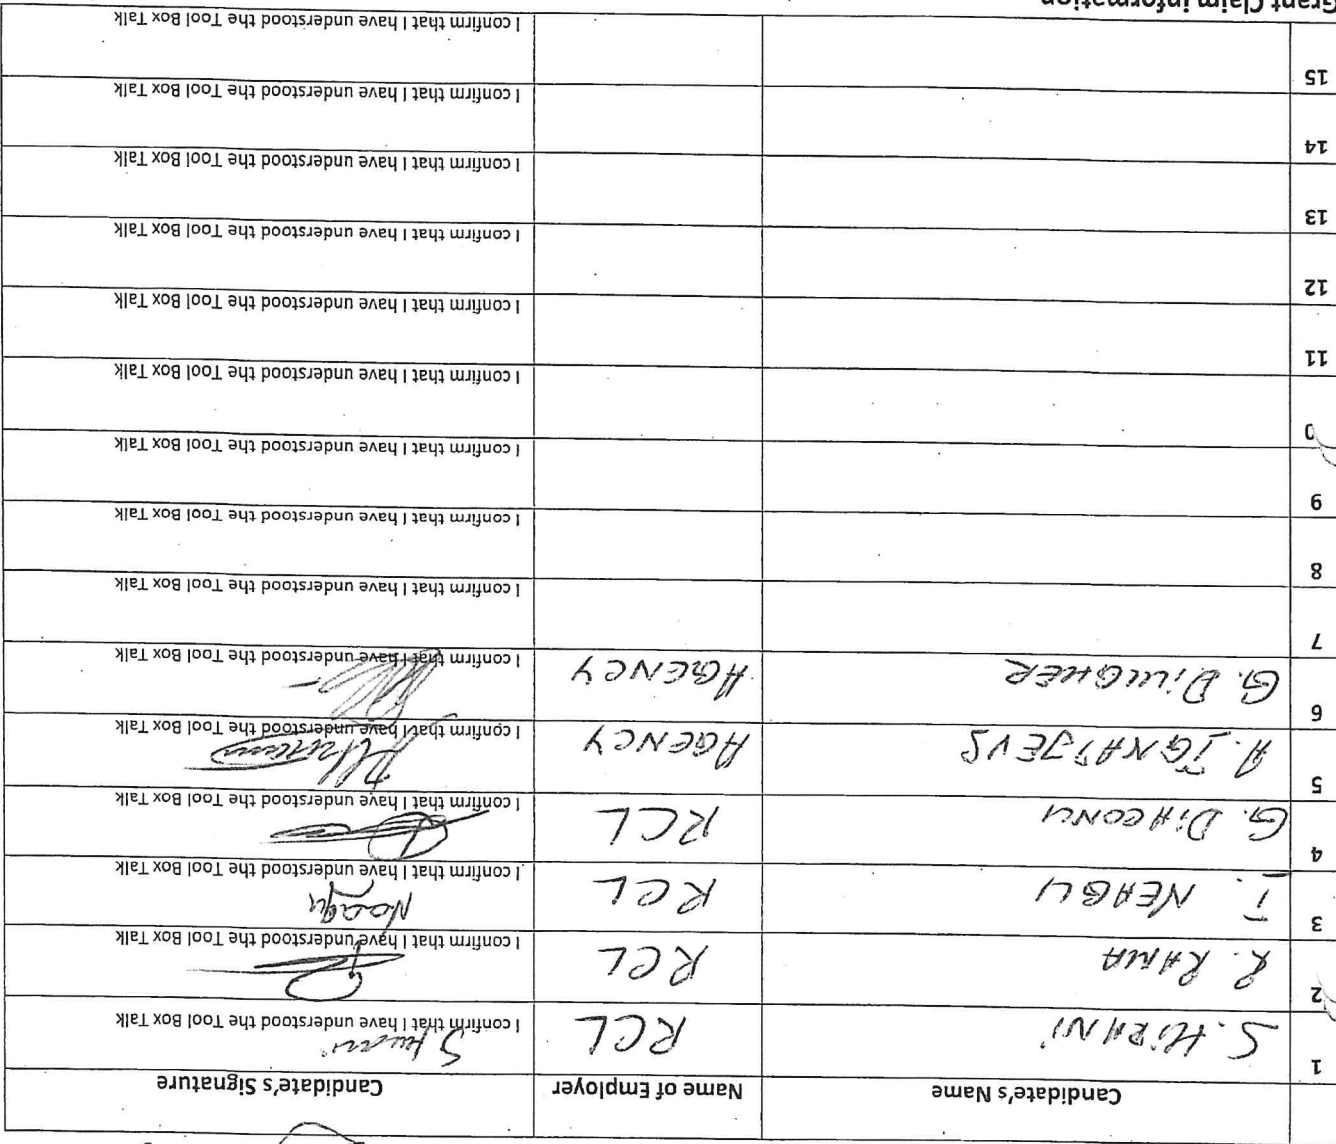 Candidate's Name Name of Employer Candidate's Signature
1 S. HIRANI RCL I confirm that I have understood the Tool Box Talk
2 R. RANA RCL I confirm that I have understood the Tool Box Talk
3 I. NEAGU RCL Neagu I confirm that I have understood the Tool Box Talk
4 G. DIACONU RCL I confirm that I have understood the Tool Box Talk
5 A. IGNATJEVS AGENCY I confirm that I have understood the Tool Box Talk
6 G. AGENCY I confirm that I have understood the Tool Box Talk
7 I confirm that I have understood the Tool Box Talk
8 I confirm that I have understood the Tool Box Talk
9 I confirm that I have understood the Tool Box Talk
0 I confirm that I have understood the Tool Box Talk
11 I confirm that I have understood the Tool Box Talk
12 I confirm that I have understood the Tool Box Talk
13 I confirm that I have understood the Tool Box Talk
14 I confirm that I have understood the Tool Box Talk
15 I confirm that I have understood the Tool Box Talk
Grant Claim information